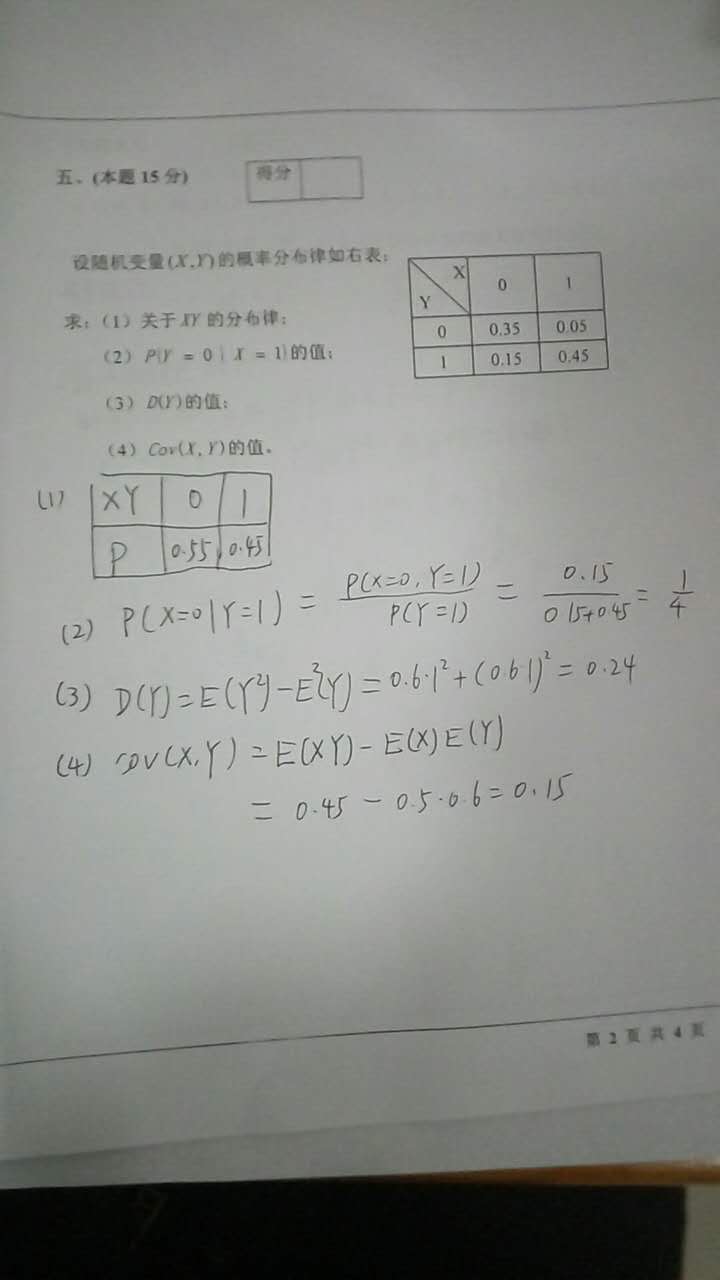 五、(本题 15 分) 得分
设随机变量(X,Y)的概率分布律如右表：
X 0 1
Y
0 0.35 0.05
1 0.15 0.45
求：（1）关于 XY 的分布律；
（2）P(Y = 0 | X = 1)的值；
（3）D(Y)的值；
（4）Cov(X, Y)的值。
(1) XY 0 1
P 0.55 0.45
(2) P(X=0|Y=1) = P(X=0,Y=1)/P(Y=1) = 0.15/0.15+0.45 = 1/4
(3) D(Y)=E(Y²)-E²(Y)=0.6·1²+(0.6·1)²=0.24
(4) cov(X,Y)=E(XY)-E(X)E(Y)
= 0.45 - 0.5·0.6=0.15
第 2 页 共 4 页